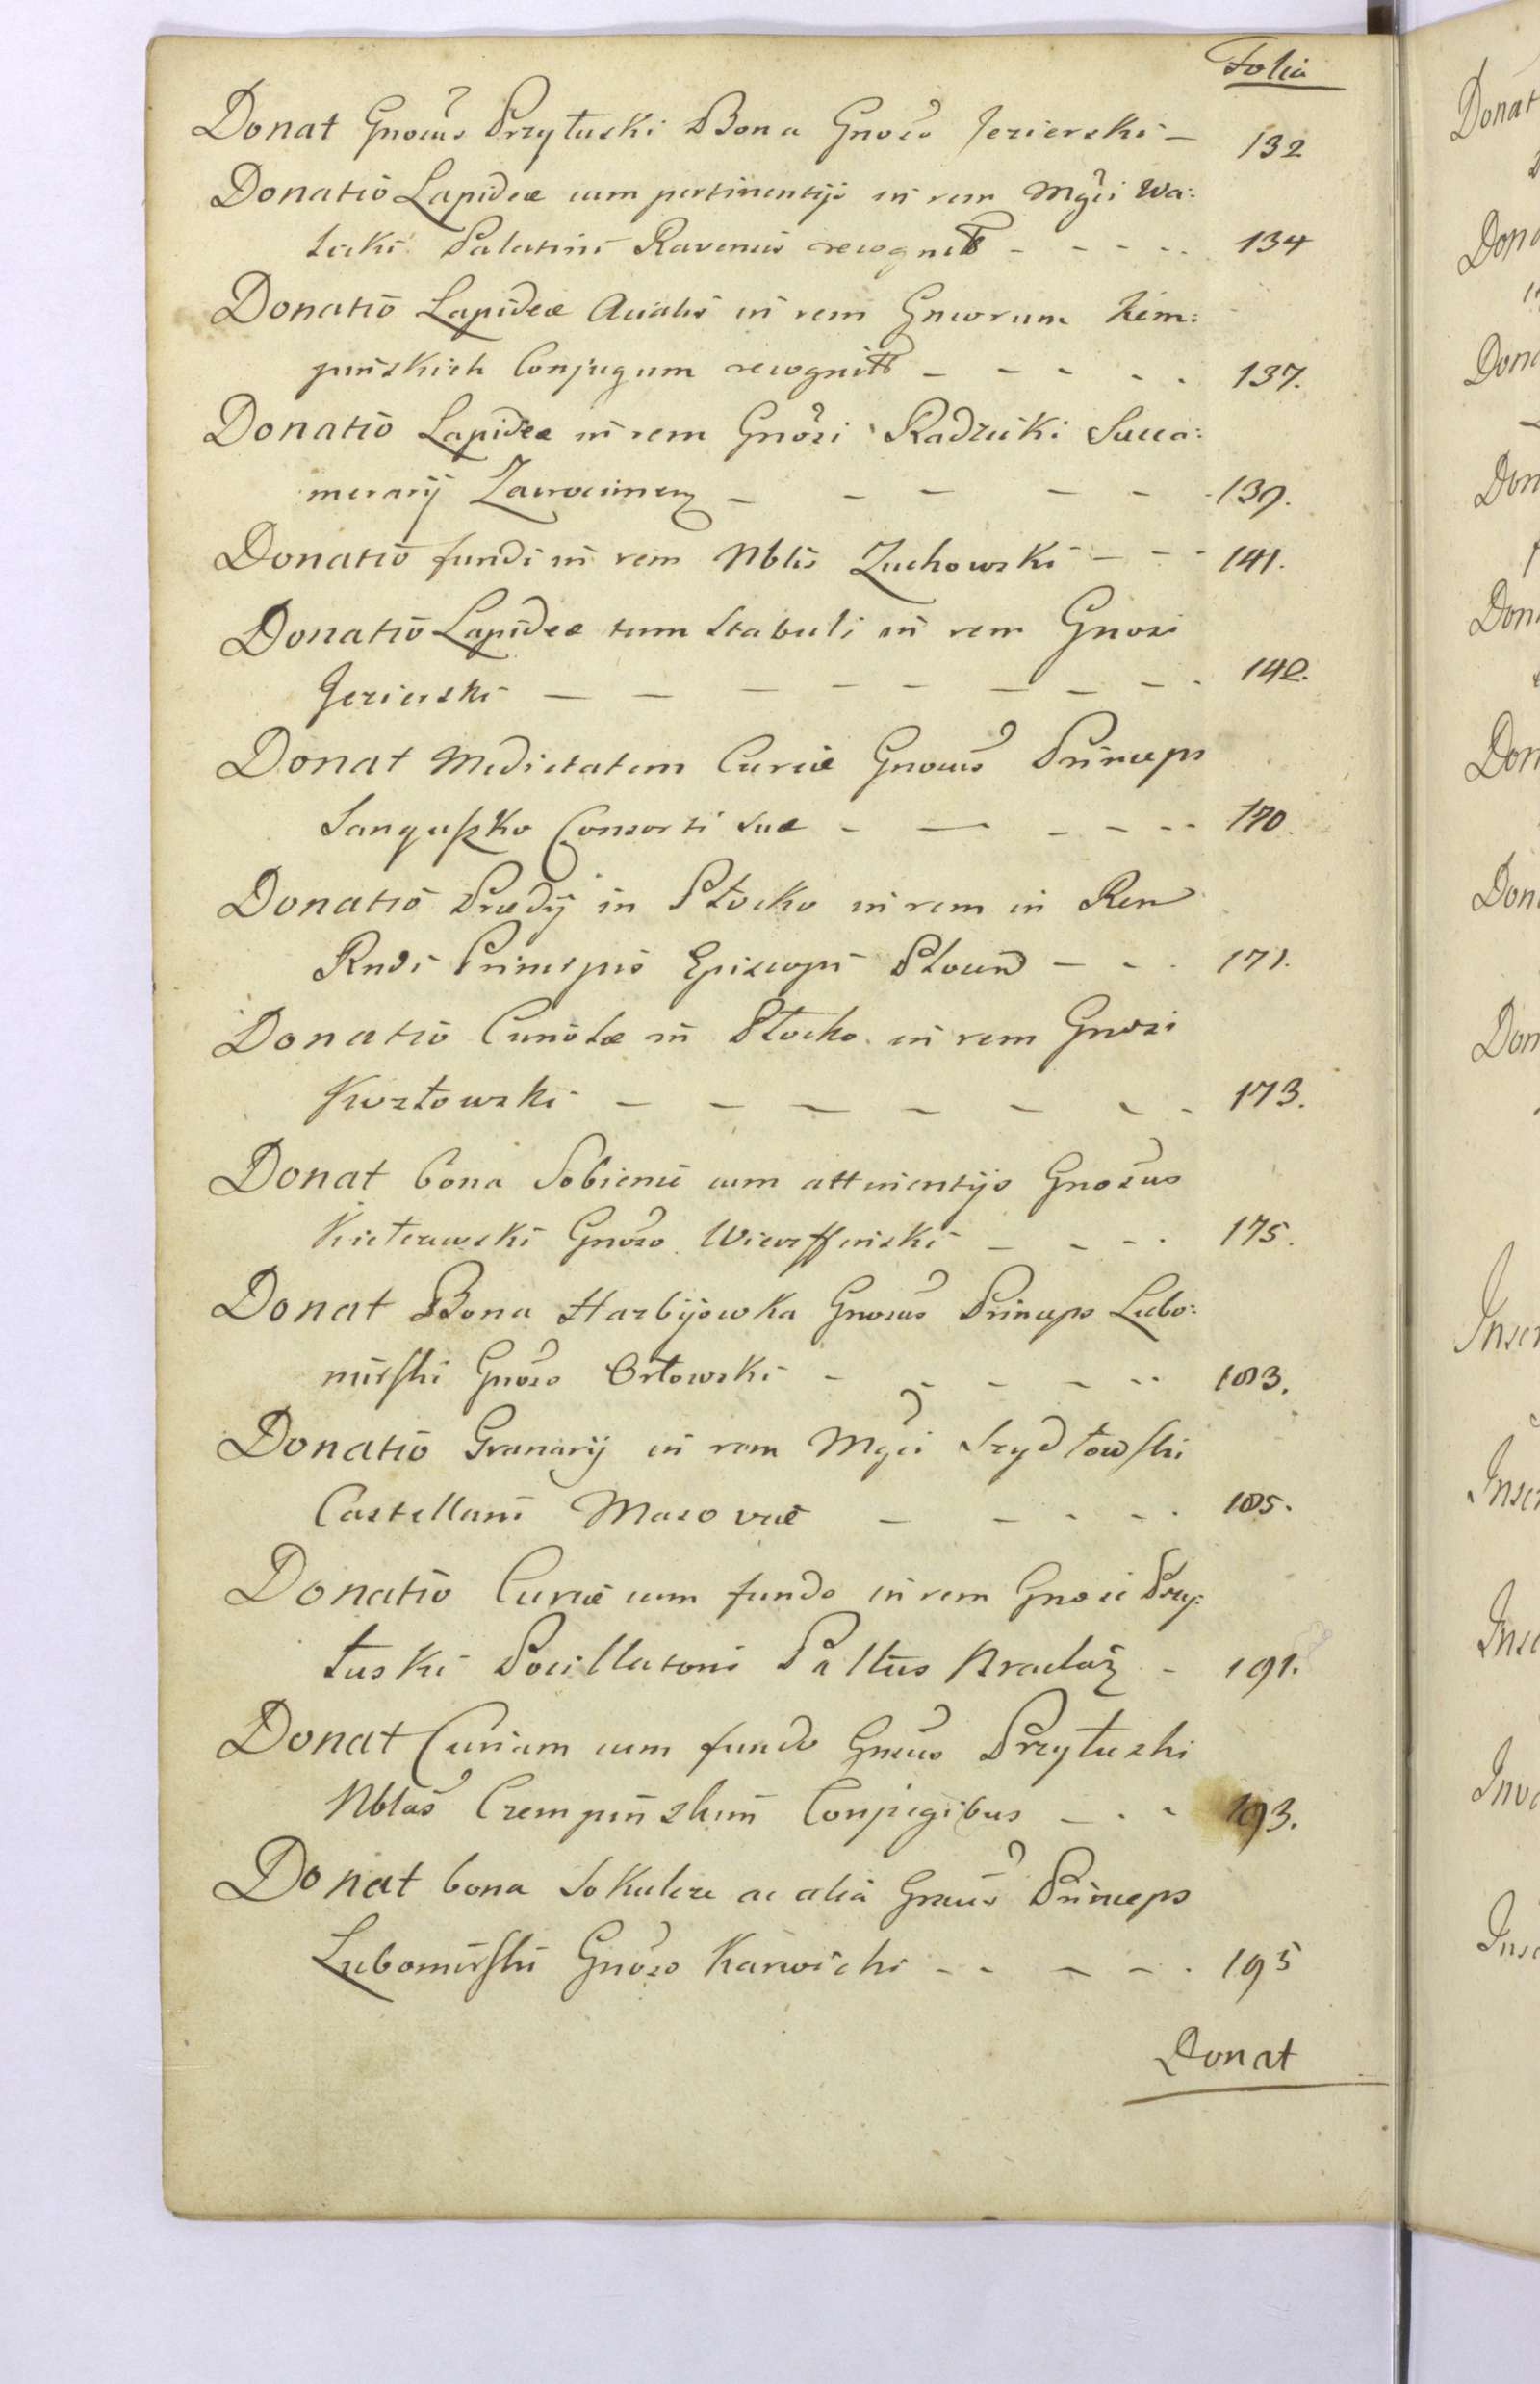 Folia
Donat Gnosus Przyłuski Bona Gnoso Jezierski — 132
Donatio Lapideæ cum pertinentijs in rem Mgci Wa:
licki Palatini Ravensis recognita - - - - 134
Donatio Lapideæ Acialis in rem Gnsorum Kem:
pinskich Conjugum recognita - - - - - 137.
Donatio Lapideæ in rem Gnosi Radzicki Succa:
merarij Zawrocimen - - - - - 139.
Donatio fundi in rem Nblis Zuchowski - - - 141.
Donatio Lapideæ tum Stabuli in rem Gnosi
Jezierski - - - - - - - - - 142.
Donat Medietatem Curiæ Gnosus Princeps
Sanguszko Consorti suæ - - - - - 170.
Donatio Prædij in Płocko in rem in Rem
Rndi Principis Episcopi Plocen - - - 171.
Donatio Curiolæ in Płocko in rem Gnosi
Kosztowski - - - - - - - 173.
Donat bona Sobienie cum attinentijs Gnosus
Kietczewski Gnoso - - - - 175.
Donat Bona Harbijowka Gnosus Princeps Lubo:
mirski Gnoso Orłowski - - - - - 183.
Donatio Granarij in rem Mgci Szydłowski
Castellani Masoviæ - - - - - 185.
Donatio Curiæ cum fundo in rem Gnosi Przy:
łuski Pocillatoris - 191.
Donat Curiam cum fundo Gnsus Przyłuski
Nblas Czempinskim Conjugibus - - - 193.
Donat bona Sokulcze ac alia Gnsus Princeps
Lubomirski Gnoso Karwicki - - - - - 195
Donat